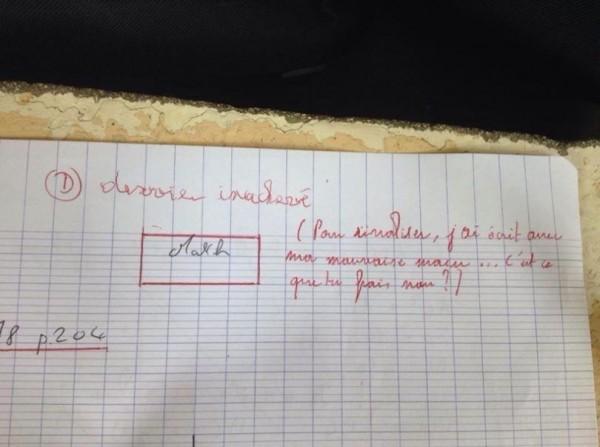 ① devoir inachevé
(Pour rivaliser, j'ai écrit avec
Math
ma mauvaise main... c'est ce
que tu fais non ?)
18 p.204